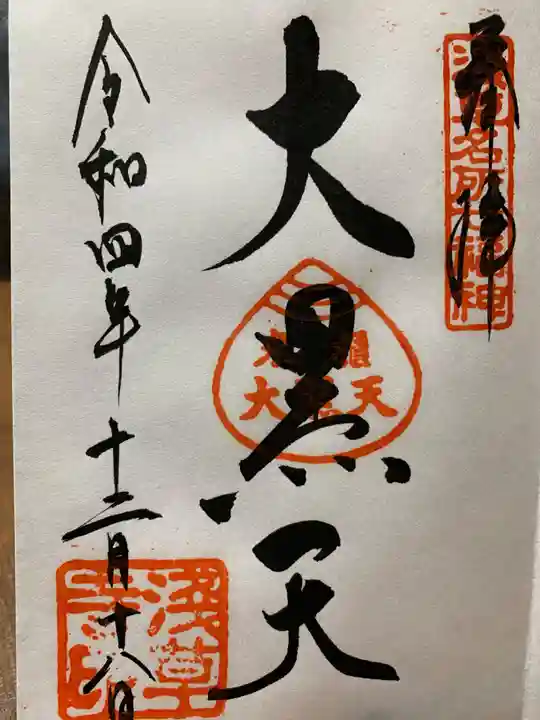 奉拝
浅草名所七福神
大黒天
米びつ
大黒天
令和四年十二月十八日
浅草寺印